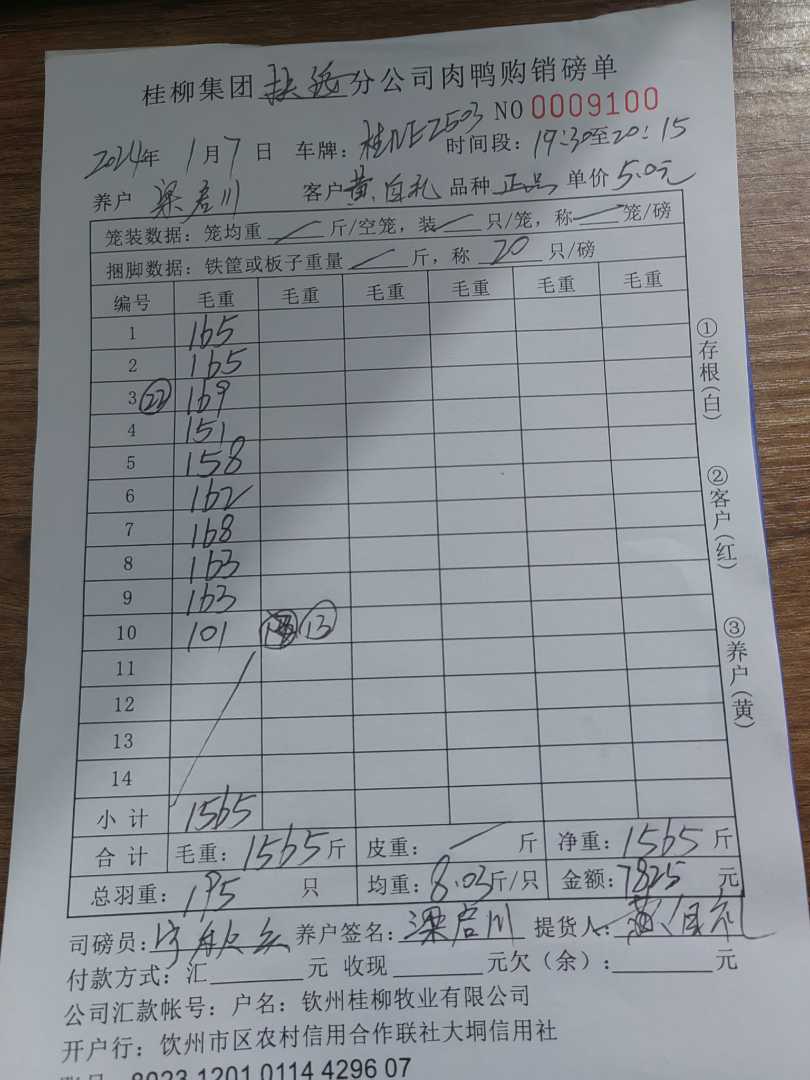 桂柳集团 扶绥 分公司肉鸭购销磅单
NO 0009100
2024年 1月7日 车牌：桂NE2503 时间段：19:30至20:15
养户 梁启川 客户 黄 自礼 品种 正品 单价 5.0元
笼装数据：笼均重 / 斤/空笼，装 / 只/笼，称 / 笼/磅
捆脚数据：铁筐或板子重量 / 斤，称 20 只/磅
编号 毛重 毛重 毛重 毛重 毛重 毛重
1 165
2 165
3 22 169
4 151
5 158
6 162
7 168
8 163
9 163
10 101 13
11
12
13
14
小计 1565
合计 毛重：1565斤 皮重： / 斤 净重：1565斤
总羽重：195 只 均重：8.03斤/只 金额：7825 元
①存根(白)
②客户(红)
③养户(黄)
司磅员： 养户签名：梁启川 提货人：黄自礼
付款方式：汇 元 收现 元欠（余）： 元
公司汇款帐号：户名：钦州桂柳牧业有限公司
开户行：饮州市区农村信用合作联社大垌信用社
8023 1201 0114 4296 07